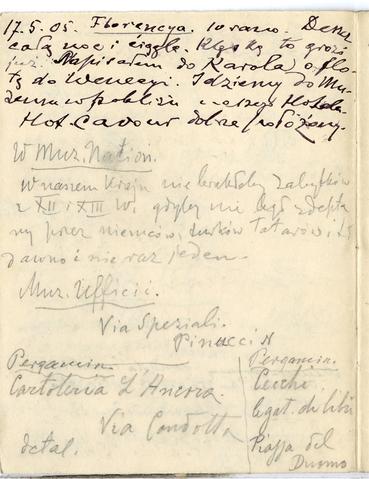 17.5.05. Florencya. 10 rano. Deszcz
całą noc i ciągle. Klęską to grozi
już. Napisałem do Karola, o flo-
tę do Wenecyi. Idziemy do Mu-
zeum w pobliżu naszego Hotelu
Hot. Cavour dobrze położony.
W Muz. Nation.
w naszym Kraju nie brakłoby zabytków
z XII i XIII w. gdyby nie był zdepta
ny przez niemców, turków tatarów, i
dawno i nie raz jeden.
Muz. Ufficii.
Via Speziali.
Pinucci N
Pergamin.
Cartoleria L'Ancora.
Via Condotta
detal.
Pergamin.
Cecchi
legat. di libri
Piazza del
Duomo